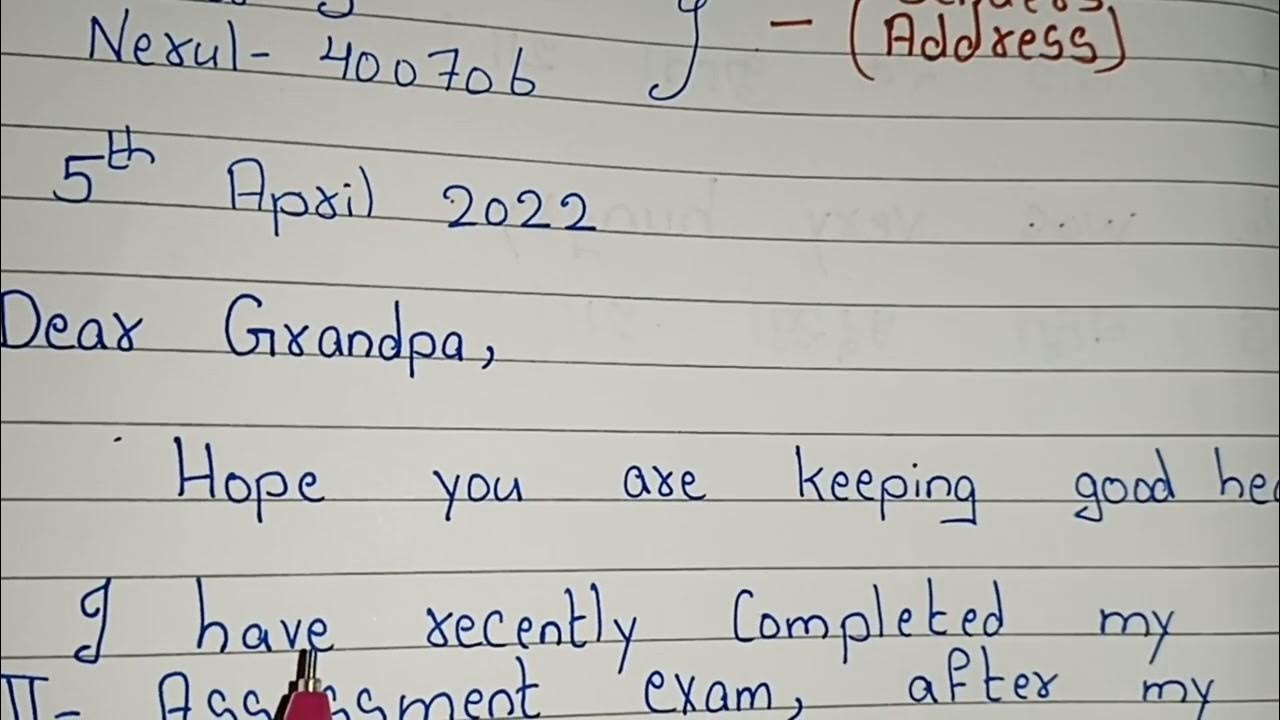 Nerul- 400706 - (Address)
5th April 2022
Dear Grandpa,
Hope you are keeping good
I have recently Completed my
II- exam, after my